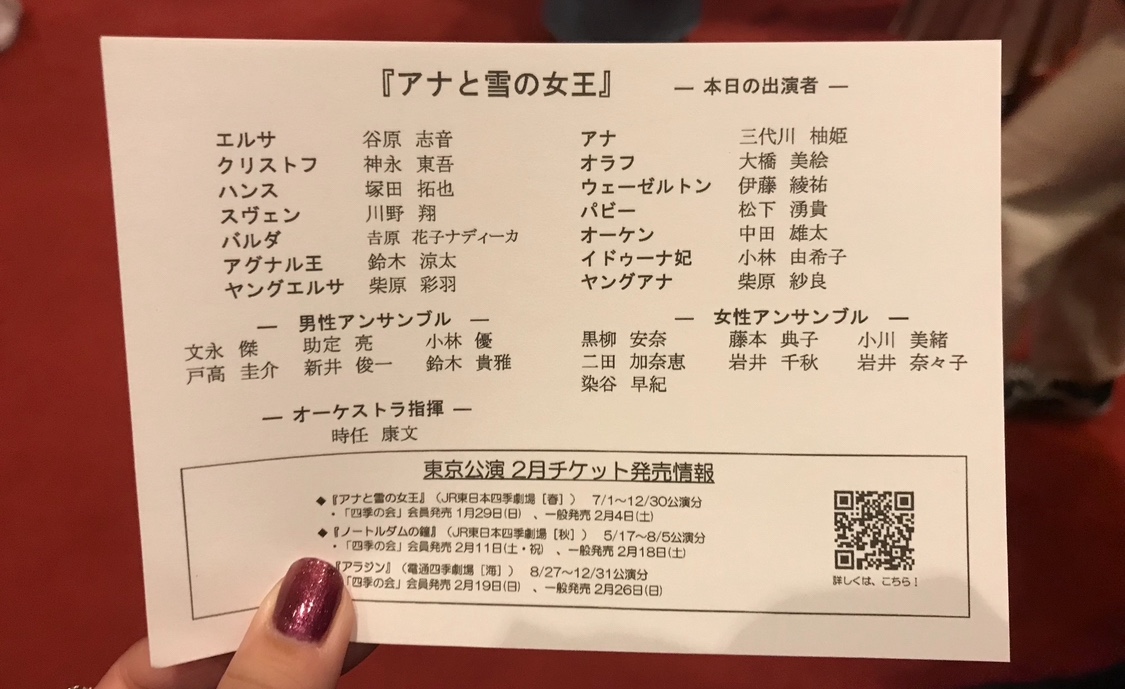 『アナと雪の女王』 — 本日の出演者 —
エルサ 谷原 志音 アナ 三代川 柚姫
クリストフ 神永 東吾 オラフ 大橋 美絵
ハンス 塚田 拓也 ウェーゼルトン 伊藤 綾祐
スヴェン 川野 翔 パビー 松下 湧貴
バルダ 𠮷原 花子ナディーカ オーケン 中田 雄太
アグナル王 鈴木 涼太 イドゥーナ妃 小林 由希子
ヤングエルサ 柴原 彩羽 ヤングアナ 柴原 紗良
— 男性アンサンブル — — 女性アンサンブル —
文永 傑 助定 亮 小林 優 黒柳 安奈 藤本 典子 小川 美緒
戸高 圭介 新井 俊一 鈴木 貴雅 二田 加奈恵 岩井 千秋 岩井 奈々子
染谷 早紀
— オーケストラ指揮 —
時任 康文
東京公演 2月チケット発売情報
◆『アナと雪の女王』（JR東日本四季劇場［春］） 7/1～12/30公演分
・「四季の会」会員発売 1月29日(日) 、一般発売 2月4日(土)
◆『ノートルダムの鐘』（JR東日本四季劇場［秋］） 5/17～8/5公演分
・「四季の会」会員発売 2月11日(土・祝) 、一般発売 2月18日(土)
『アラジン』（電通四季劇場［海］） 8/27～12/31公演分
「四季の会」会員発売 2月19日(日) 、一般発売 2月26日(日)
詳しくは、こちら！